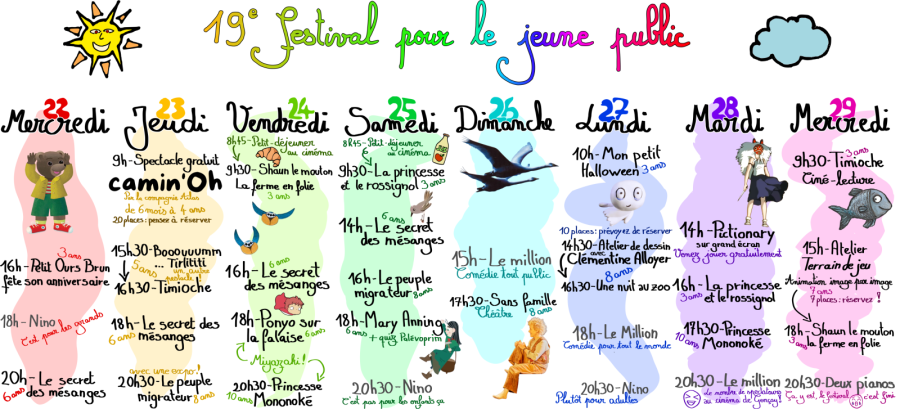 19e Festival pour le jeune public
22
Mercredi
3 ans
16h-Petit Ours Brun
fête son anniversaire
18h-Nino
C'est pour les grands
20h-Le secret
6 ans des mésanges
23
Jeudi
9h-Spectacle gratuit
camin'Oh
Par la compagnie Atlas
de 6 mois à 4 ans
20 places: pensez à réserver
15h30-Booouuumm
... Tirlititi
5 ans un autre
spectacle
16h30-Timioche
18h-Le secret des
6 ans mésanges
avec une expo!
20h30-Le peuple
migrateur 8 ans
24
Vendredi
8h45-Petit-déjeuner
au cinéma
9h30-Shaun le mouton
La ferme en folie
3 ans
6 ans
16h-Le secret
des mésanges
18h-Ponyo sur
la falaise 6 ans
Miyazaki!
20h30-Princesse
10 ans Mononoké
25
Samedi
8h45-Petit-déjeuner
au cinéma
9h30-La princesse
et le rossignol 3 ans
6 ans
14h-Le secret
des mésanges
16h-Le peuple
migrateur 8 ans
18h-Mary Anning
6 ans + quiz Palévoprim
20h30-Nino
C'est pas pour les enfants ça
26
Dimanche
15h-Le million
Comédie tout public
17h30-Sans famille
Théâtre 8 ans
27
Lundi
10h-Mon petit
Halloween 3 ans
10 places: prévoyez de réserver
14h30-Atelier de dessin
avec
Clémentine Alloyer
8 ans
16h30-Une nuit au zoo
18h-Le Million
Comédie pour tout le monde
20h30-Nino
Plutôt pour adultes
28
Mardi
14h-Pictionary
sur grand écran
Venez jouer gratuitement
16h-La princesse
3 ans et le rossignol
17h30-Princesse
10 ans Mononoké
20h30-Le million
Le nombre de spectateurs
au cinéma de Gençay!
29
Mercredi
3 ans
9h30-Timioche
Ciné-lecture
15h-Atelier
Terrain de jeu
Animation image par image
7 ans
7 places: réservez!
18h-Shaun le mouton
3 ans la ferme en folie
20h30-Deux pianos
Ça y est, le festival c'est fini